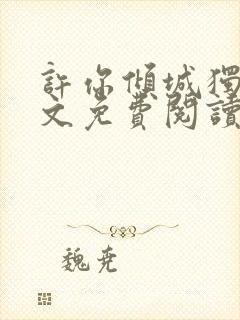 許你傾城獨
文免費閱讀
魏尭